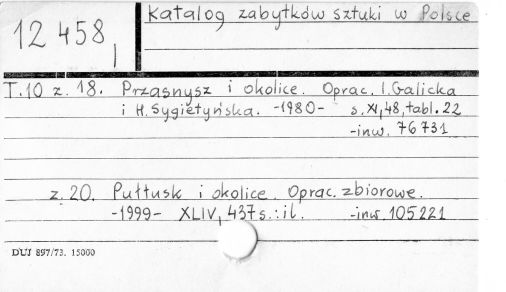 Katalog zabytków sztuki w Polsce
12 458
I
T.10 z. 18. Przasnysz i okolice. Oprac. I. Galicka
i H. Sygietyńska. -1980- s. XI, 48, tabl. 22
-inw. 76731
z. 20. Pułtusk i okolice. Oprac. zbiorowe.
-1999- XLIV, 437 s. : il. -inw. 105221
DUJ 897/73. 15000